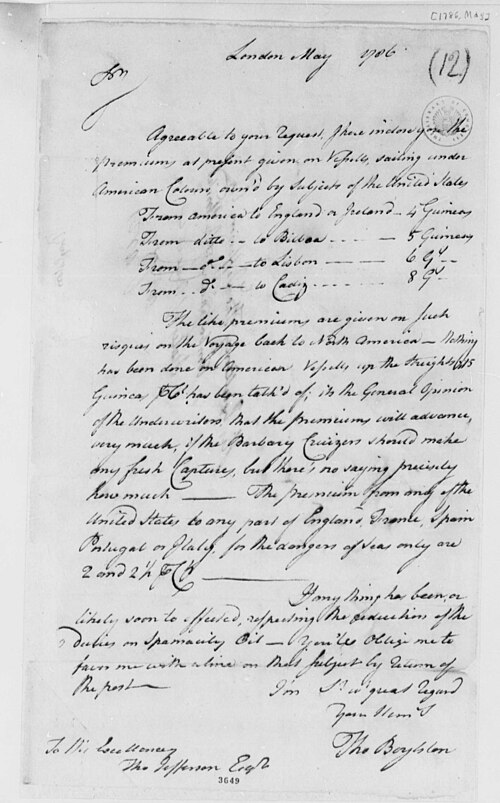 [1786, May]
London May 1786
(12)
Sir
Agreeable to your request, I here inclose you the
premiums at present given on Vessells, sailing under
American Colours, own'd by Subjects of the United States
From america to England or Ireland - 4 Guineas
From ditto -- to Bilboa ---- 5 Guineas
From - do -- to Lisbon ---- 6 Gs --
From .. do -- to Cadiz ---- 8 Gs --
The like premiums are given on such
risques on the Voyage back to North America - Nothing
has been done on American Vessells up the Streights, 15
Guineas has been talk'd of; its the General Opinion
of the Underwriters that the premiums will advance,
very much, if the Barbary Cruizers should make
any fresh Captures, but there's no saying precisely
how much —— The premium from any of the
United States to any part of England, France, Spain
Portugal or Italy for the dangers of seas only are
2 and 2½
If any thing has been, or
likely soon to effected, respecting the reduction of the
Duties on Spamacity Oil - You'll Oblige me to
favor me with a line on that subject by return of
the post —
I'm Sr. wt. great regard
Your Hum. S
Tho Boylston
To His Excellency
Tho Jefferson Esqr
3649